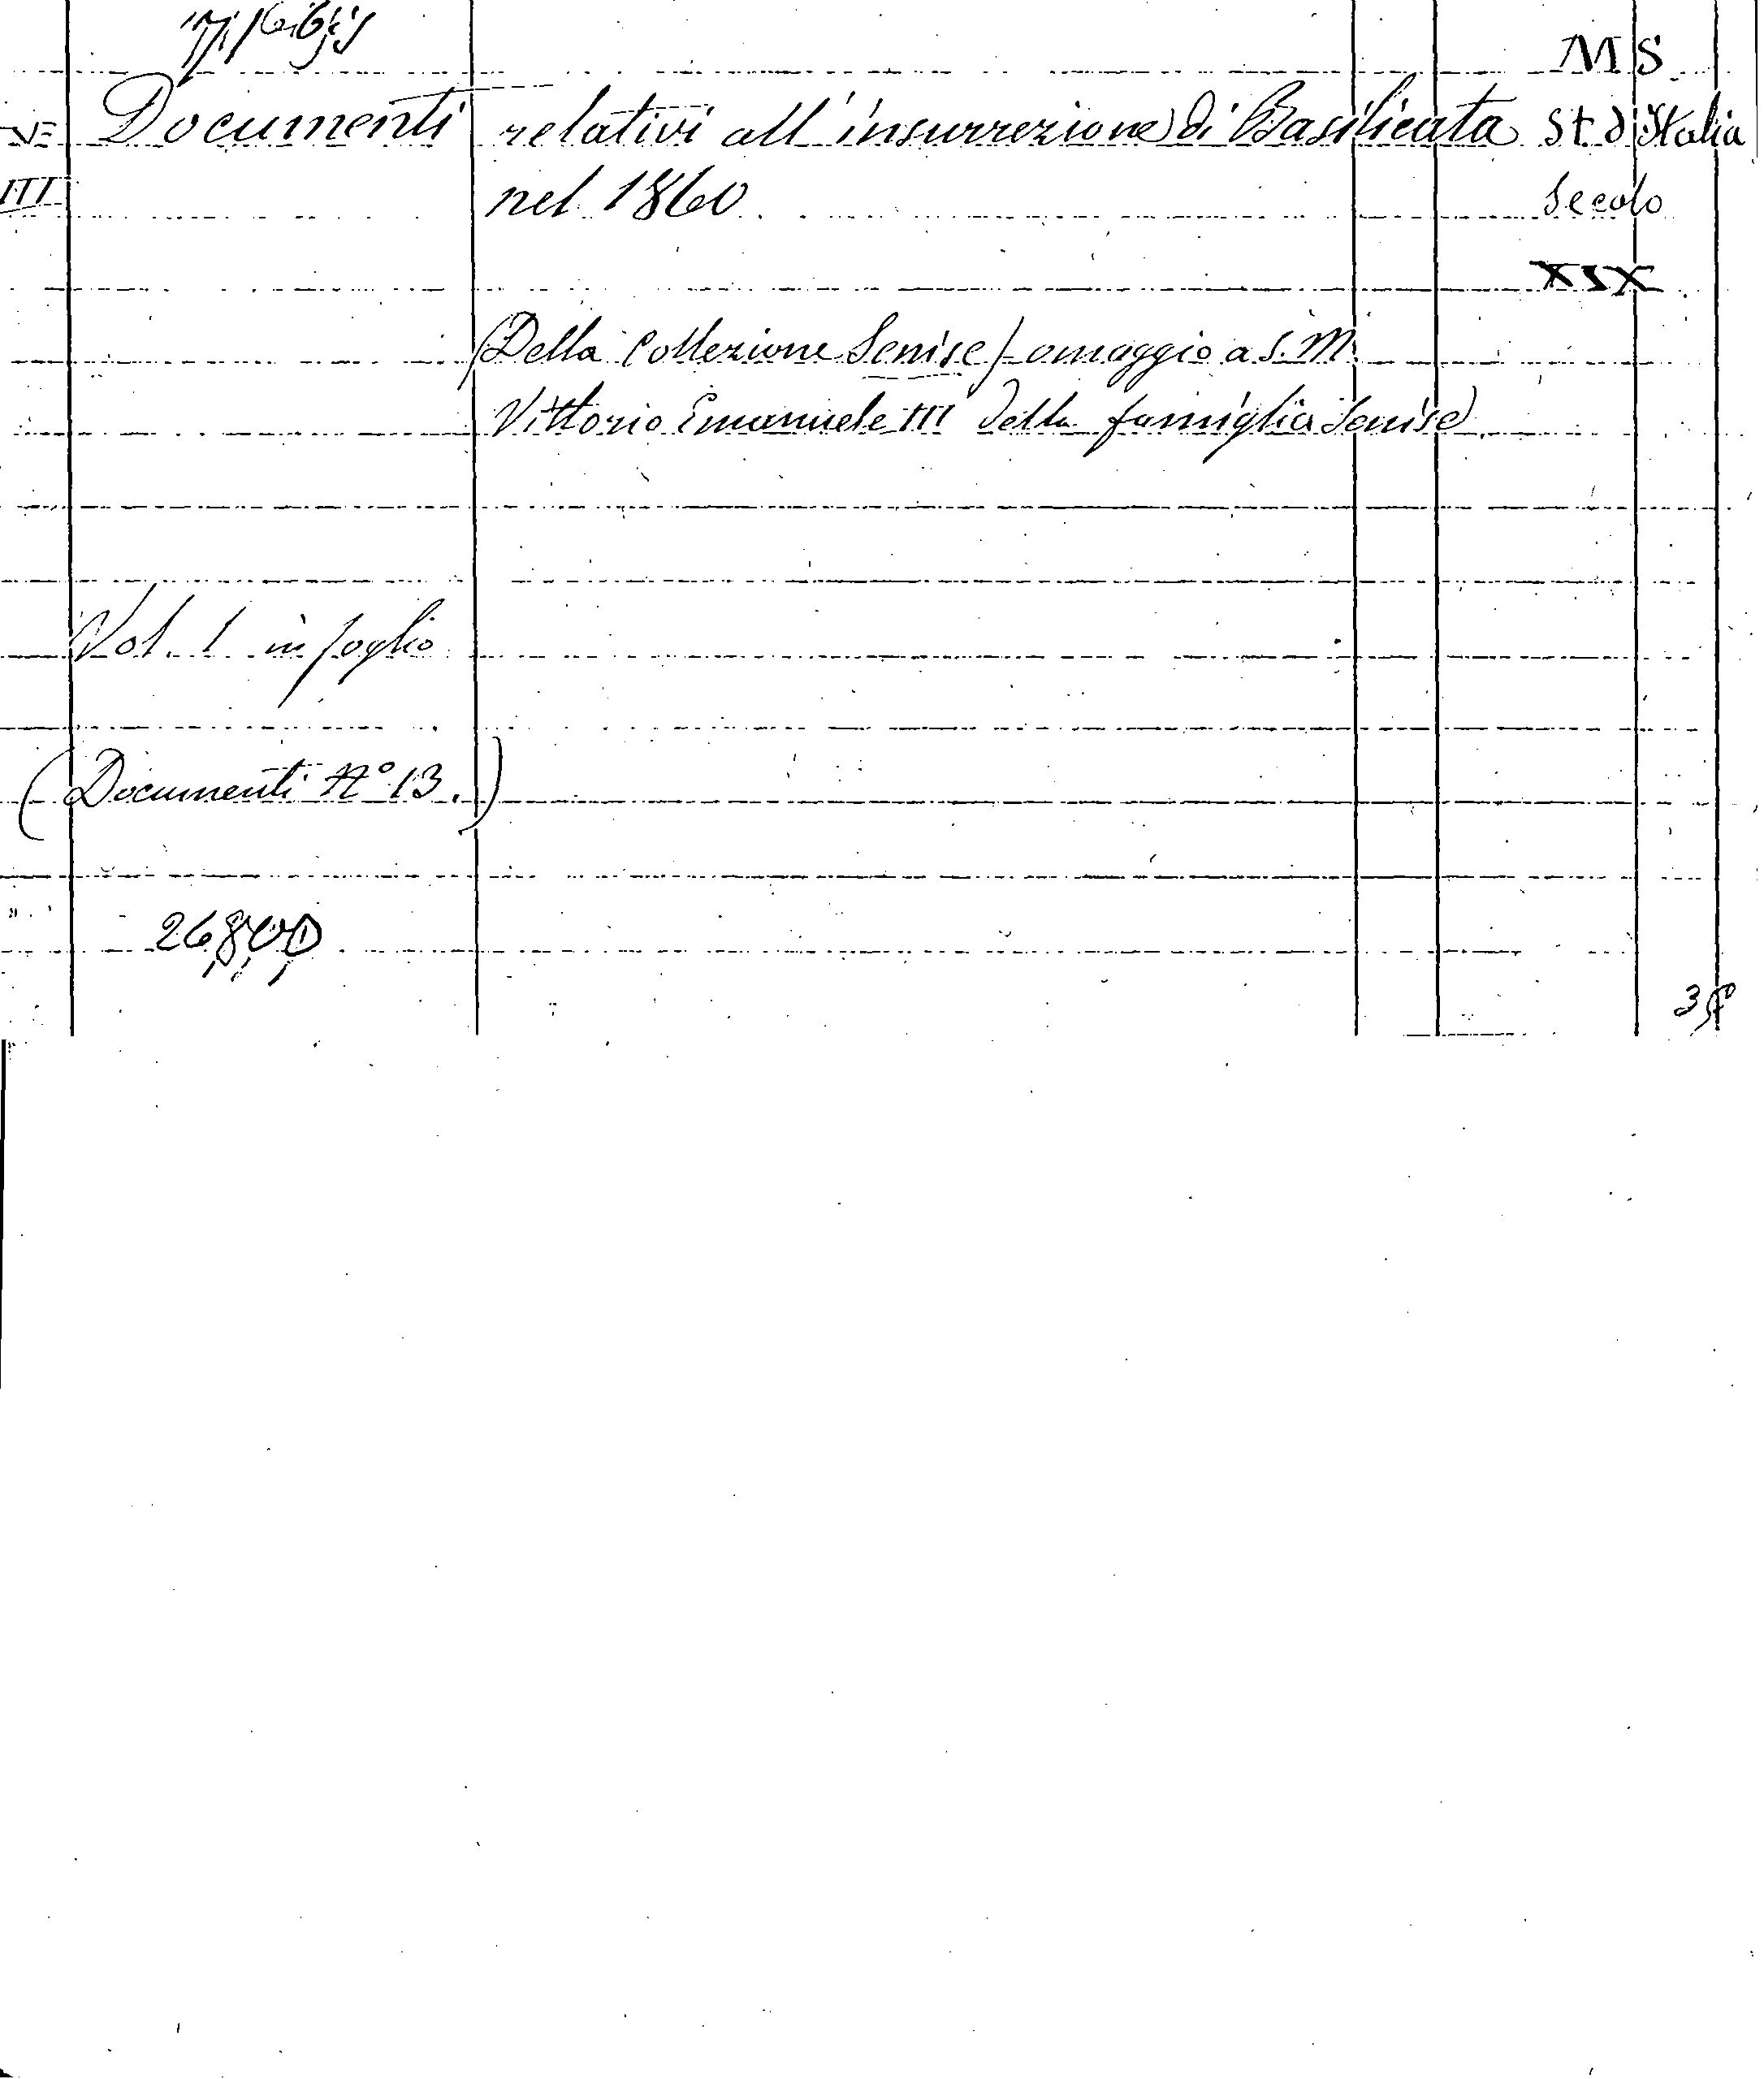 MS
VE Documenti relativi all'insurrezione di Basilicata St. d'Italia
III nel 1860 Secolo
XIX
(Della Collezione Senise) omaggio a S. M.
Vittorio Emanuele III della famiglia Senise)
Vol. 1 in foglio
(Documenti N° 13.)
26800